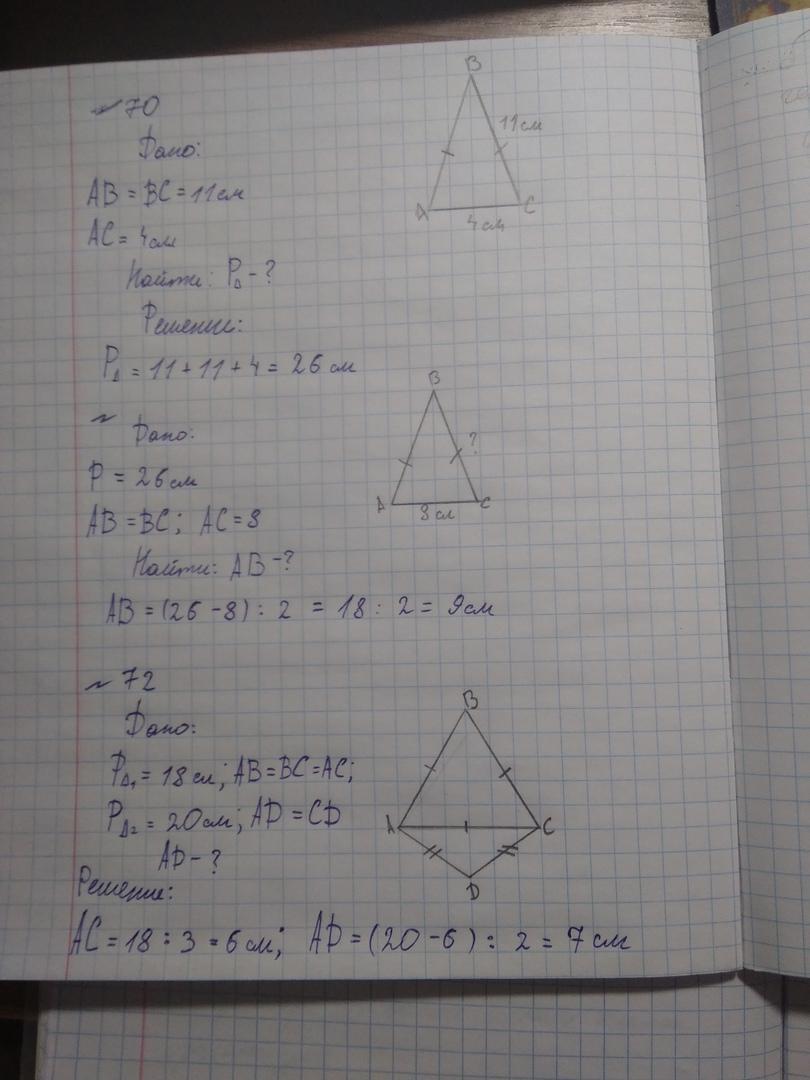 № 70
Дано:
AB = BC = 11 см
AC = 4 см
Найти: P△ - ?
Решение:
P△ = 11 + 11 + 4 = 26 см
B
11 см
A
C
4 см
№
Дано:
P = 26 см
AB = BC; AC = 8
Найти: AB - ?
AB = (26 - 8) : 2 = 18 : 2 = 9 см
B
?
A
C
8 см
№ 72
Дано:
P△₁ = 18 см; AB = BC = AC;
P△₂ = 20 см; AD = CD
AD - ?
B
A
C
D
Решение:
AC = 18 : 3 = 6 см; AD = (20 - 6) : 2 = 7 см